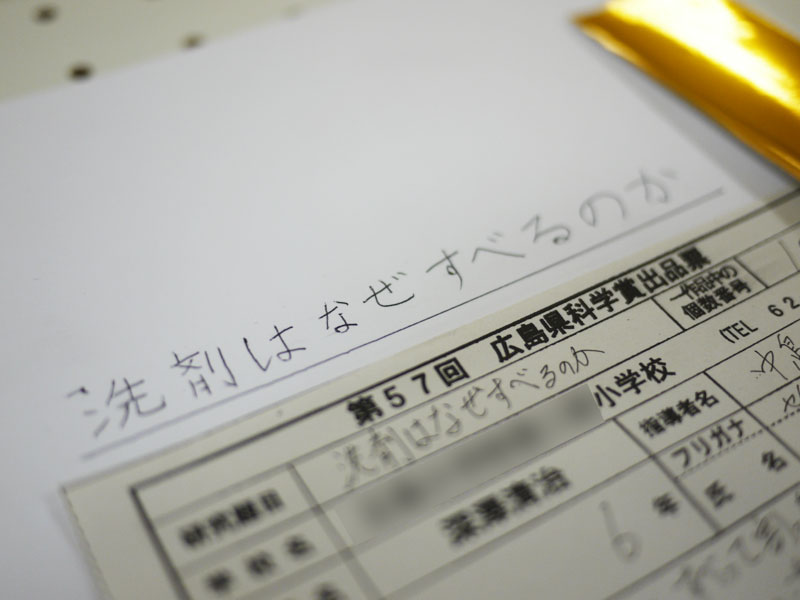 洗剤はなぜすべるのか
第57回 広島県科学賞出品票
作品中の
個数番号
研究題目
洗剤はなぜすべるのか
(TEL 62
学校名
小学校
指導者名
深澤清治
フリガナ
6年
氏名